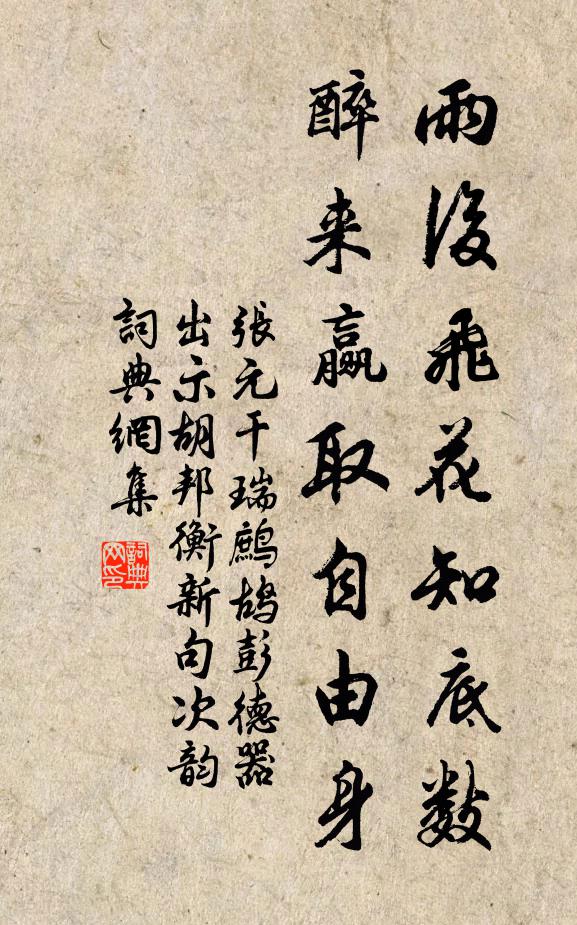 雨後飛花知底數
醉来贏取自由身
張元干瑞鷓鴣彭德器
出示胡邦衡新句次韵
詞典網集
詞典
网印